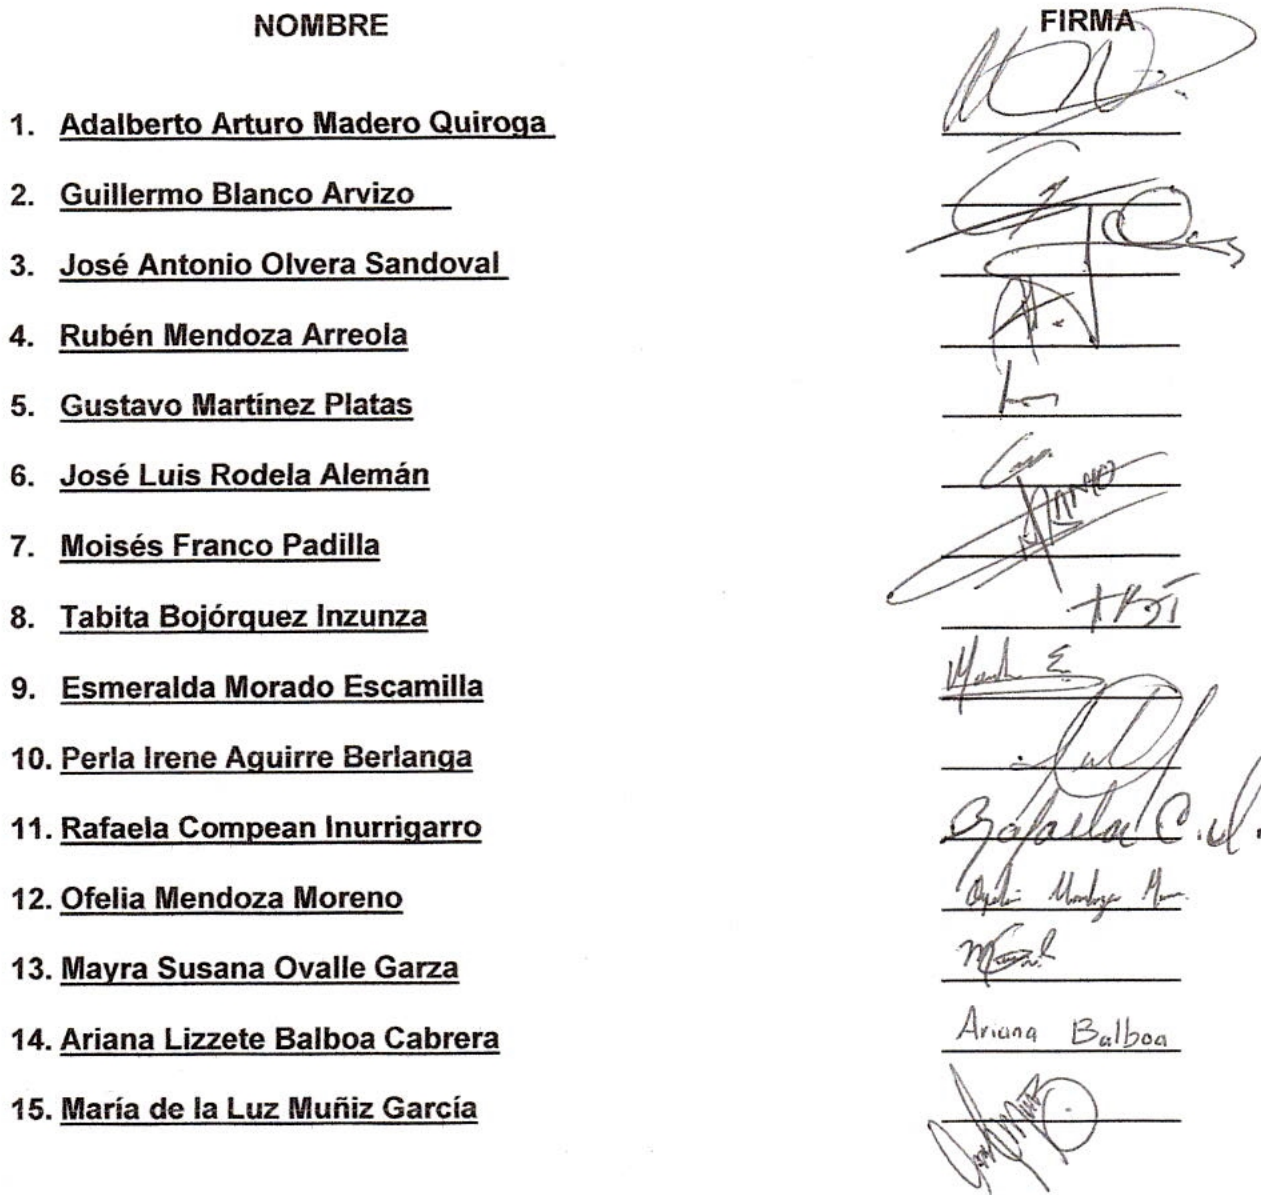 NOMBRE FIRMA
1. Adalberto Arturo Madero Quiroga
2. Guillermo Blanco Arvizo
3. José Antonio Olvera Sandoval
4. Rubén Mendoza Arreola
5. Gustavo Martínez Platas
6. José Luis Rodela Alemán
7. Moisés Franco Padilla
8. Tabita Bojórquez Inzunza
9. Esmeralda Morado Escamilla
10. Perla Irene Aguirre Berlanga
11. Rafaela Compean Inurrigarro Rafaela C. I.
12. Ofelia Mendoza Moreno Ofelia Mendoza
13. Mayra Susana Ovalle Garza
14. Ariana Lizzete Balboa Cabrera Ariana Balboa
15. María de la Luz Muñiz García